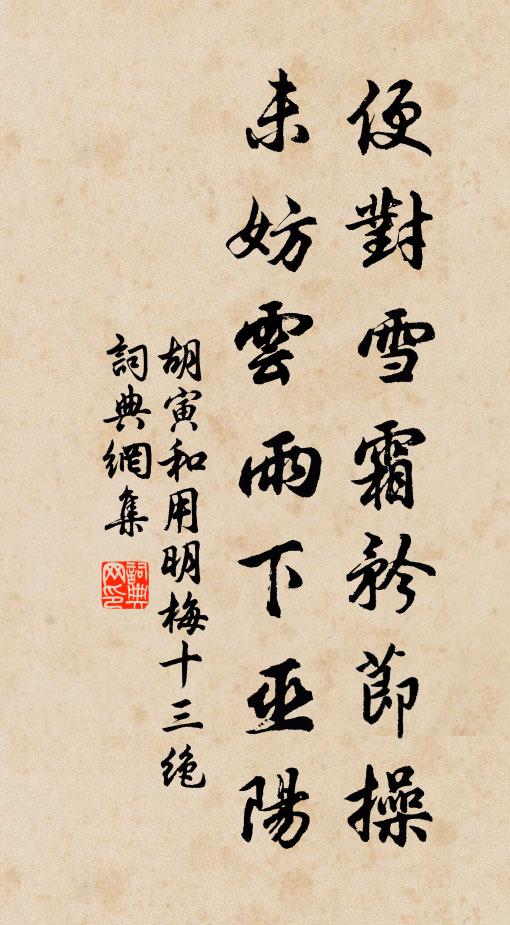 便對雪霜矜節操
未妨雲雨下巫陽
胡寅和用明梅十三絶
詞典網集
詞典网印